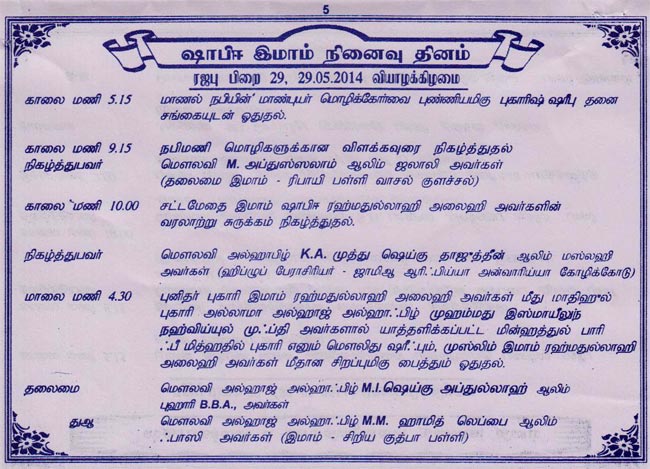 5
ஷாபிஈ இமாம் நினைவு தினம்
ரஜபு பிறை 29, 29.05.2014 வியாழக்கிழமை
காலை மணி 5.15 மாணல் நபியின் மாண்புயர் மொழிக்கோர்வை புண்ணியமிகு புகாரிஷ் ஷரீபு தனை
சங்கையுடன் ஓதுதல்.
காலை மணி 9.15 நபிமணி மொழிகளுக்கான விளக்கவுரை நிகழ்த்துதல்
நிகழ்த்துபவர் மௌலவி M. அப்துஸ்ஸலாம் ஆலிம் ஜலாலி அவர்கள்
(தலைமை இமாம் - ரிபாயி பள்ளி வாசல் குளச்சல்)
காலை மணி 10.00 சட்டமேதை இமாம் ஷாபிஈ ரஹ்மதுல்லாஹி அலைஹி அவர்களின்
வரலாற்று சுருக்கம் நிகழ்த்துதல்.
நிகழ்த்துபவர் மௌலவி அல்ஹாபிழ் K.A. முத்து ஷெய்கு தாஜுத்தீன் ஆலிம் மஸ்லஹி
அவர்கள் (ஹிப்ழுப் பேராசிரியர் - ஜாமிஆ ஆரிஃபிய்யா அன்வாரிய்யா கோழிக்கோடு)
மாலை மணி 4.30 புனிதர் புகாரி இமாம் ரஹ்மதுல்லாஹி அலைஹி அவர்கள் மீது மாதிஹுல்
புகாரி அல்லாமா அல்ஹாஜ் அல்ஹாஃபிழ் முஹம்மது இஸ்மாயீலுந்
நஹ்விய்யுல் முஃப்தி அவர்களால் யாத்தளிக்கப்பட்ட மின்ஹத்துல் பாரி
ஃபீ மித்ஹதில் புகாரி எனும் மௌலிது ஷரீஃபும், முஸ்லிம் இமாம் ரஹ்மதுல்லாஹி
அலைஹி அவர்கள் மீதான சிறப்புமிகு பைத்தும் ஓதுதல்.
தலைமை மௌலவி அல்ஹாஜ் அல்ஹாஃபிழ் M.I.ஷெய்கு அப்துல்லாஹ் ஆலிம்
புஹாரி B.B.A., அவர்கள்
துஆ மௌலவி அல்ஹாஜ் அல்ஹாஃபிழ் M.M. ஹாமித் லெப்பை ஆலிம்
ஃபாஸி அவர்கள் (இமாம் - சிறிய குத்பா பள்ளி)